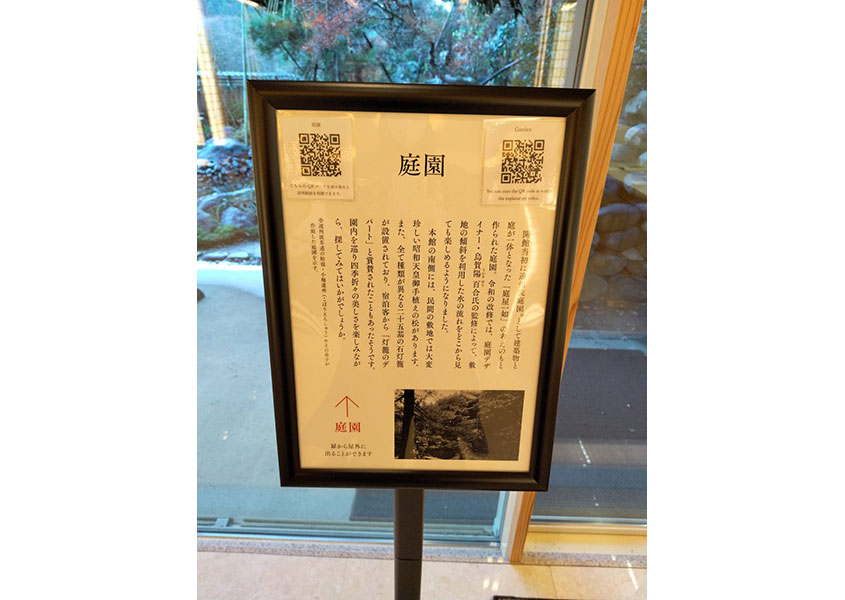 庭園
Garden
You can scan the QR code to watch
the explanatory video.
庭園
開館当初に遠州流庭園として建築物と
庭が一体となった「庭屋一如」の
作られた庭園。令和の改修では、庭園デザ
イナー・烏賀陽百合氏の監修によって、敷
地の傾斜を利用した水の流れをどこから見
ても楽しめるようになりました。
本館の南側には、民間の敷地では大変
珍しい昭和天皇御手植えの松があります。
また、全て種類が異なる二十五基の石灯籠
が設置されており、宿泊客から「灯籠のデ
パート」と賞賛されたこともあったそうです。
園内を巡り四季折々の美しさを楽しみなが
ら、探してみてはいかがでしょうか。
作庭した庭園を示す。
↑
庭園
扉から屋外に
出ることができます